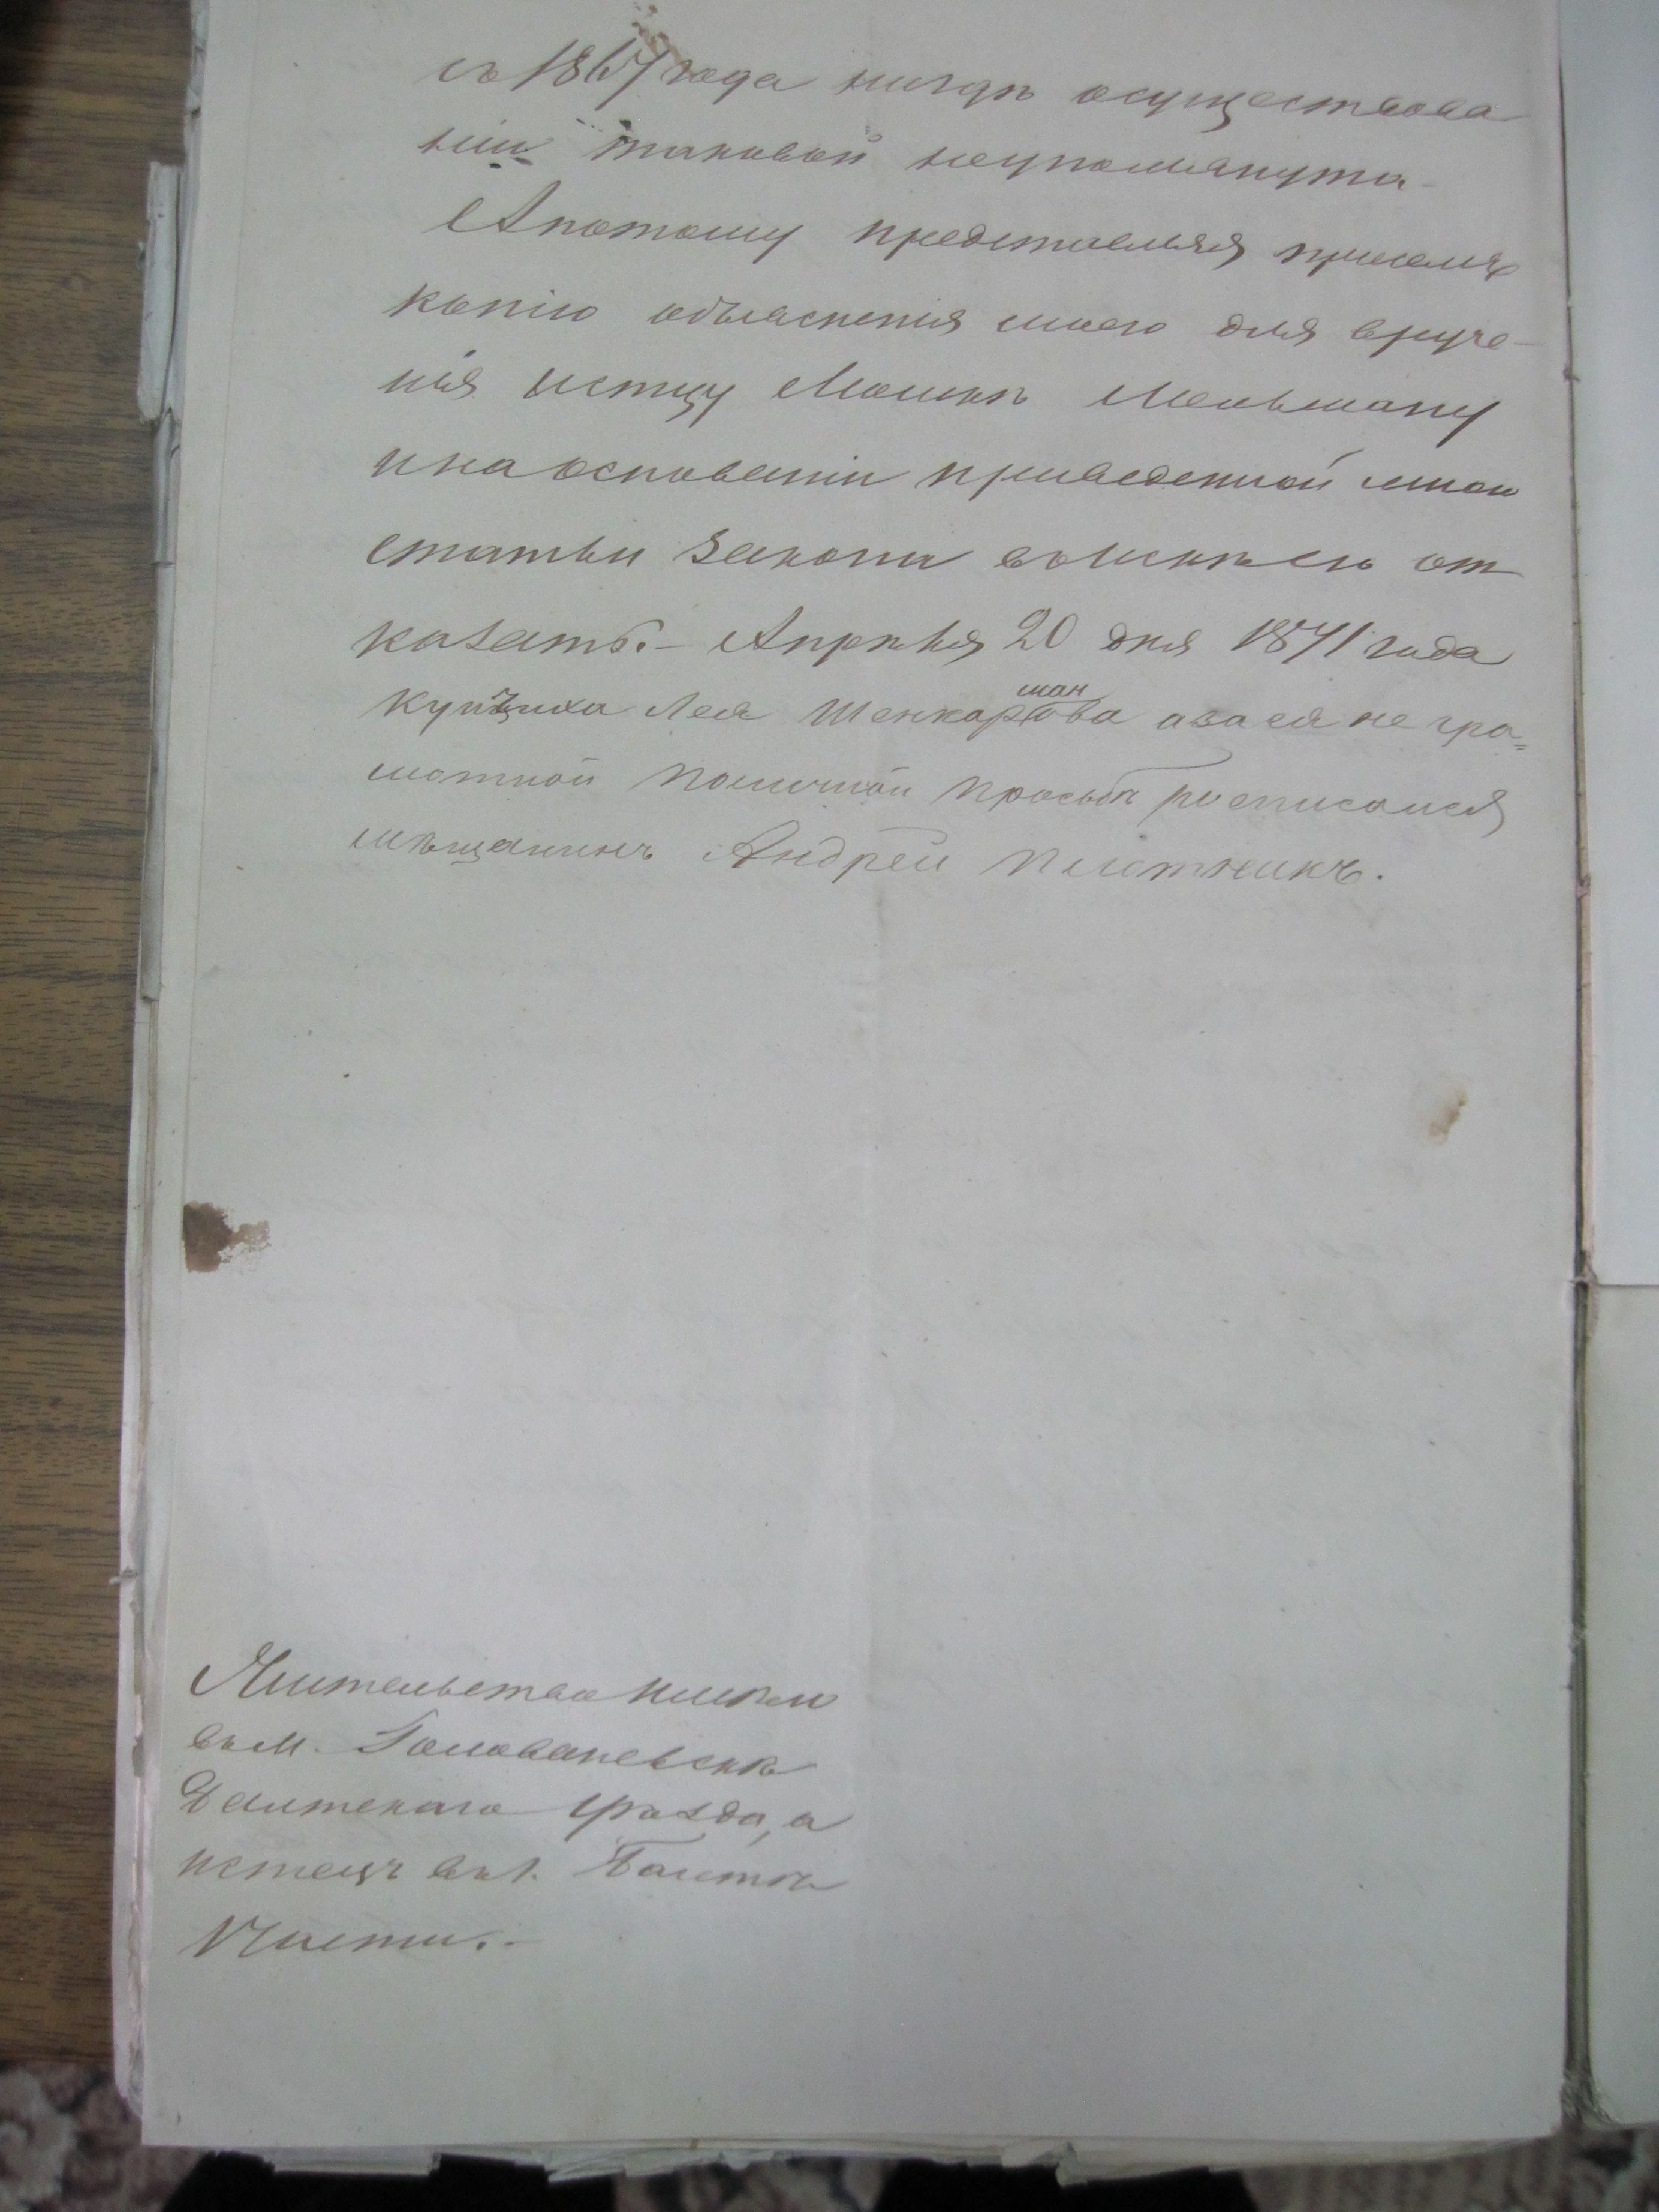 съ 1867 года нигдѣ осуществова
нии таковой неупомянута -
А потому представляя присемъ
копію объясненія моего для вруче-
нія истцу Мошкѣ Мельману
и на основаніи приведенной мною
статьи закона въ искѣ ему от
казать. - Апрѣля 20 дня 1871 года
Купчиха Лея Шенкар
ман
ова а за ея не гра=
мотной по личной просьбѣ росписался
мѣщанинъ Андрей Плотникъ.
Жительство имѣю
въ м. Голованевскѣ
Балтскаго уѣзда, а
истецъ въ г. Балтѣ
1 Части. -